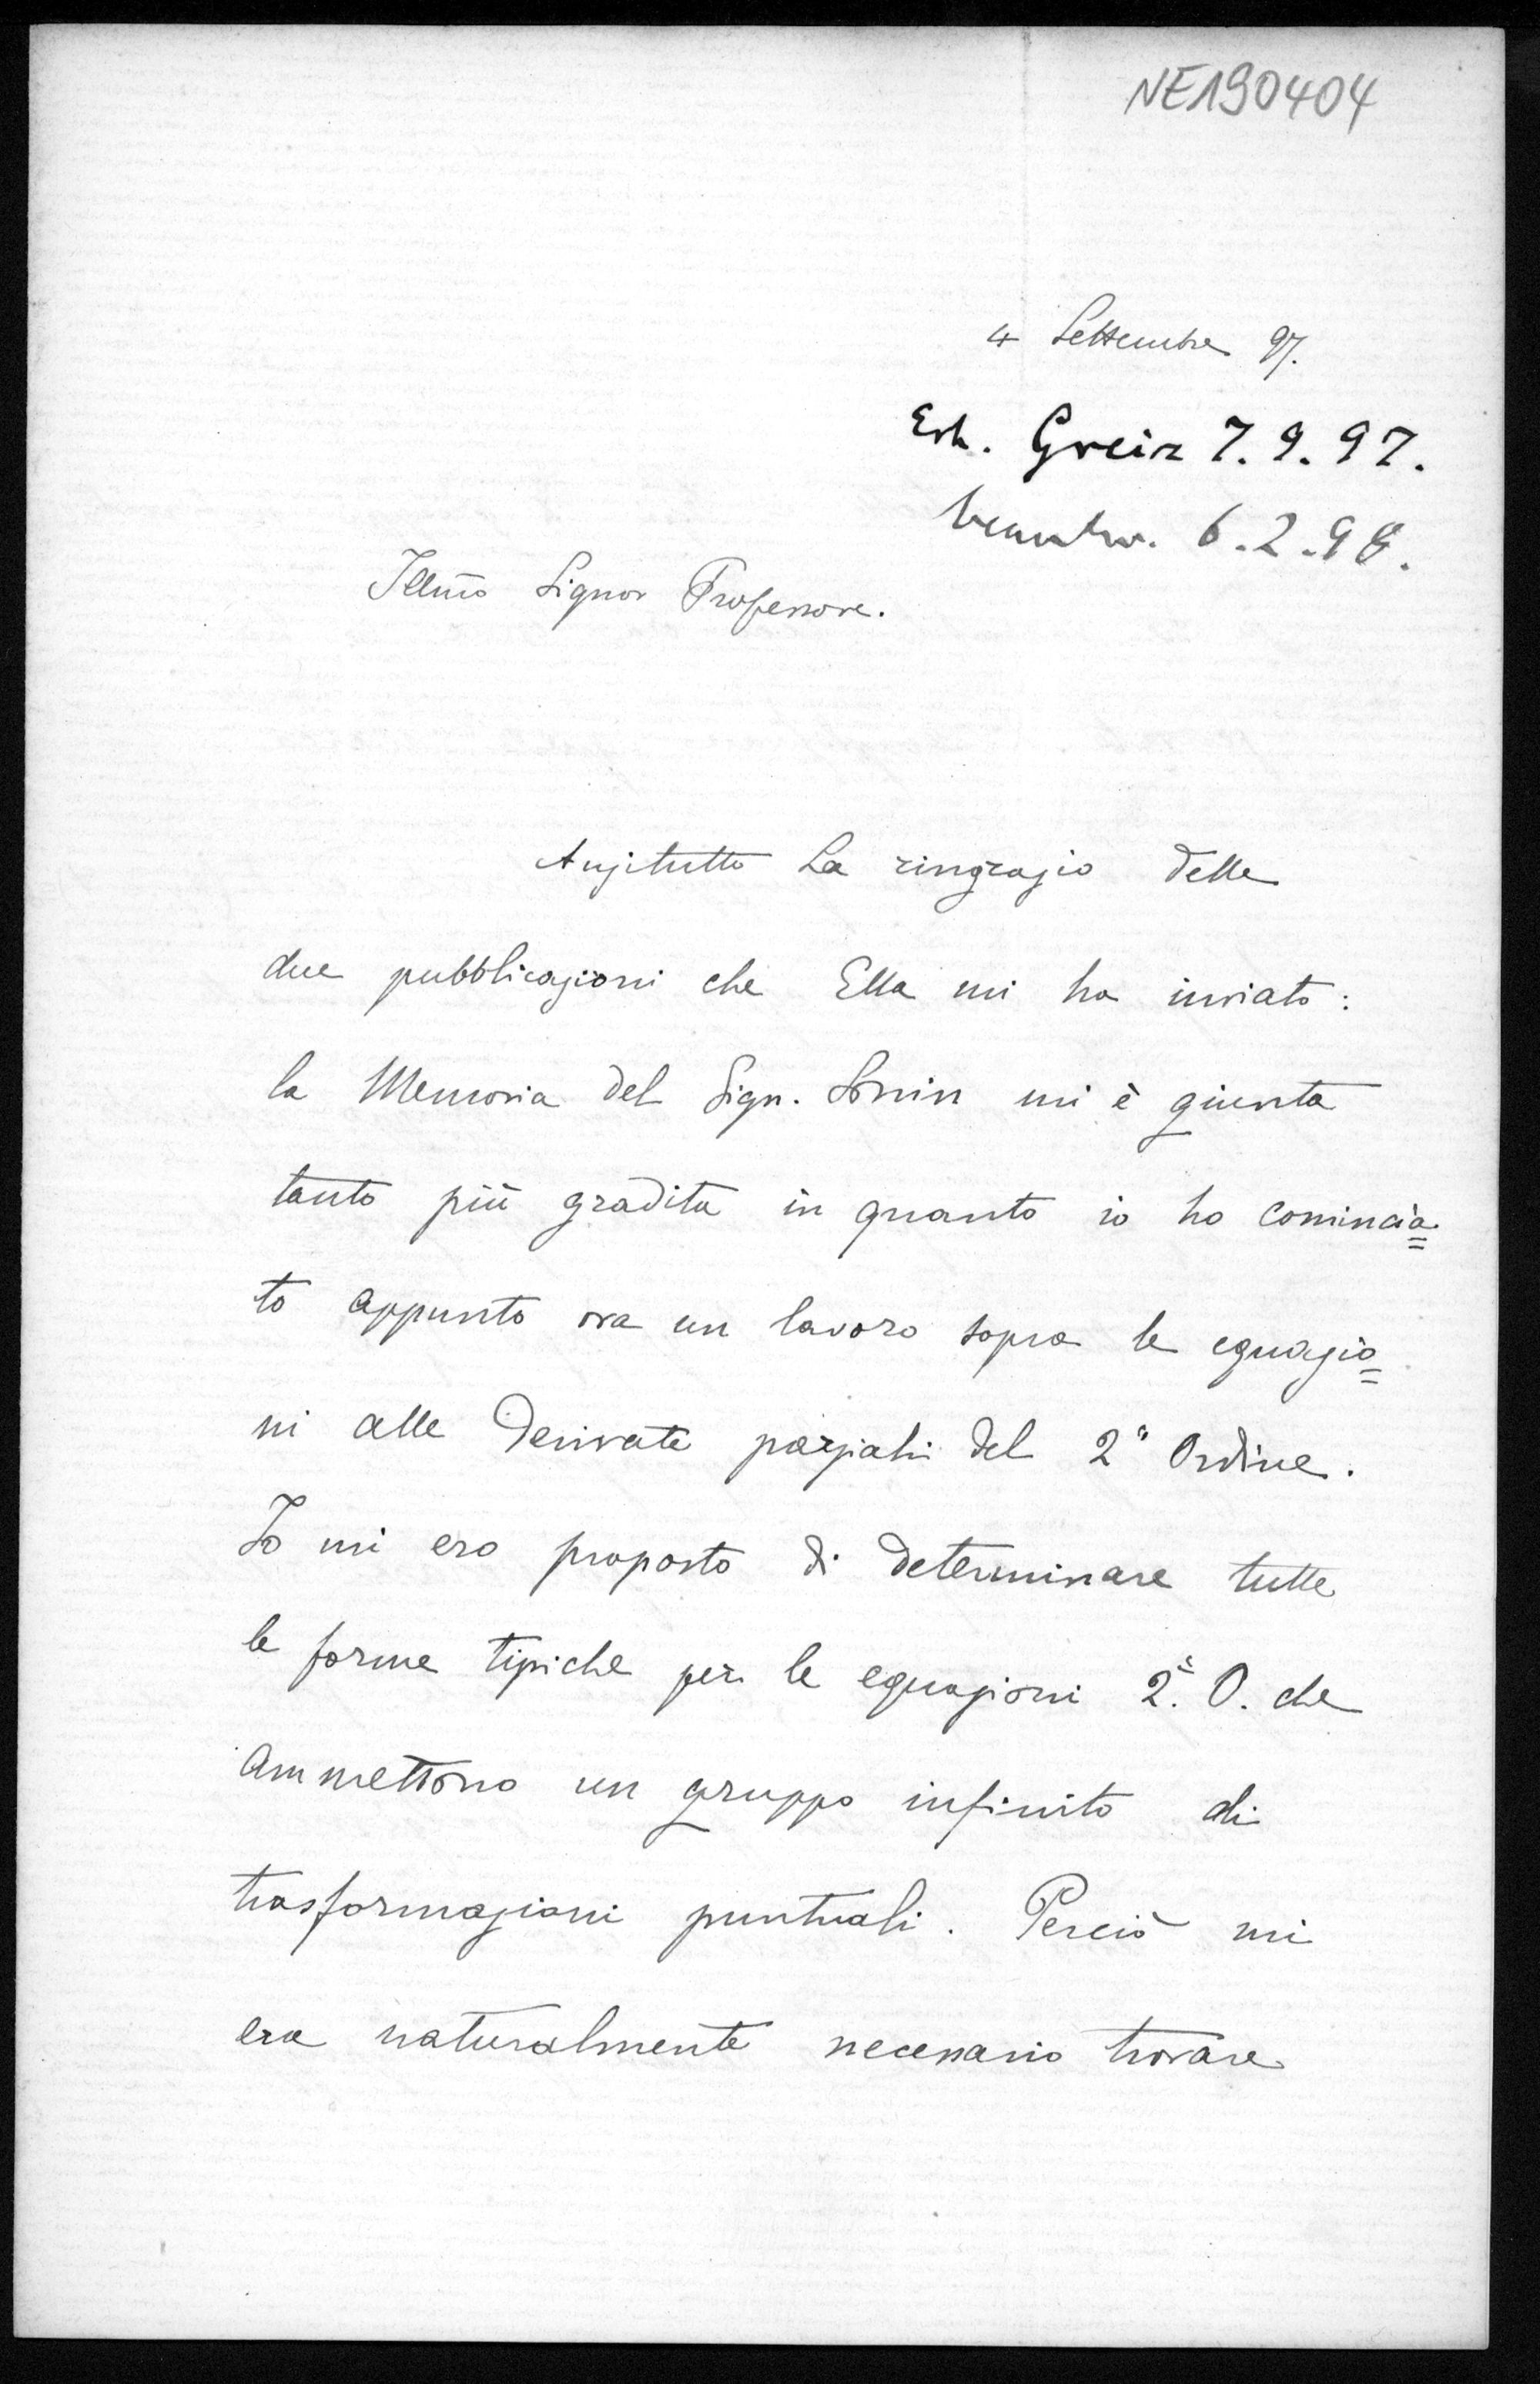 NE190404
4 Settembre 97.
Erh. Greiz 7.9.97.
beantw. 6.2.98.
Illmo Signor Professore.
Anzitutto La ringrazio delle
due pubblicazioni che Ella mi ha inviato:
la Memoria del Sign. Sonin mi è giunta
tanto più gradita in quanto io ho comincia=
to appunto ora un lavoro sopra le equazio=
ni alle derivate parziali del 2° Ordine.
Io mi ero proposto di determinare tutte
le forme tipiche per le equazioni 2°. O. che
ammettono un gruppo infinito di
trasformazioni puntuali. Perciò mi
era naturalmente necessario trovare